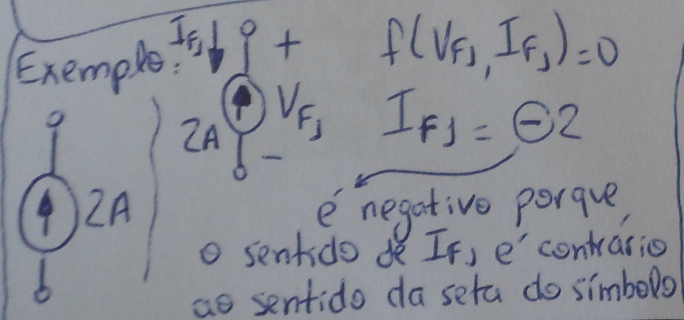 Exemplo:
I_FJ
+
f(V_FJ, I_FJ)=0
2A
V_FJ
I_FJ = -2
-
2A
é negativo porque
o sentido de I_FJ é contrário
ao sentido da seta do símbolo